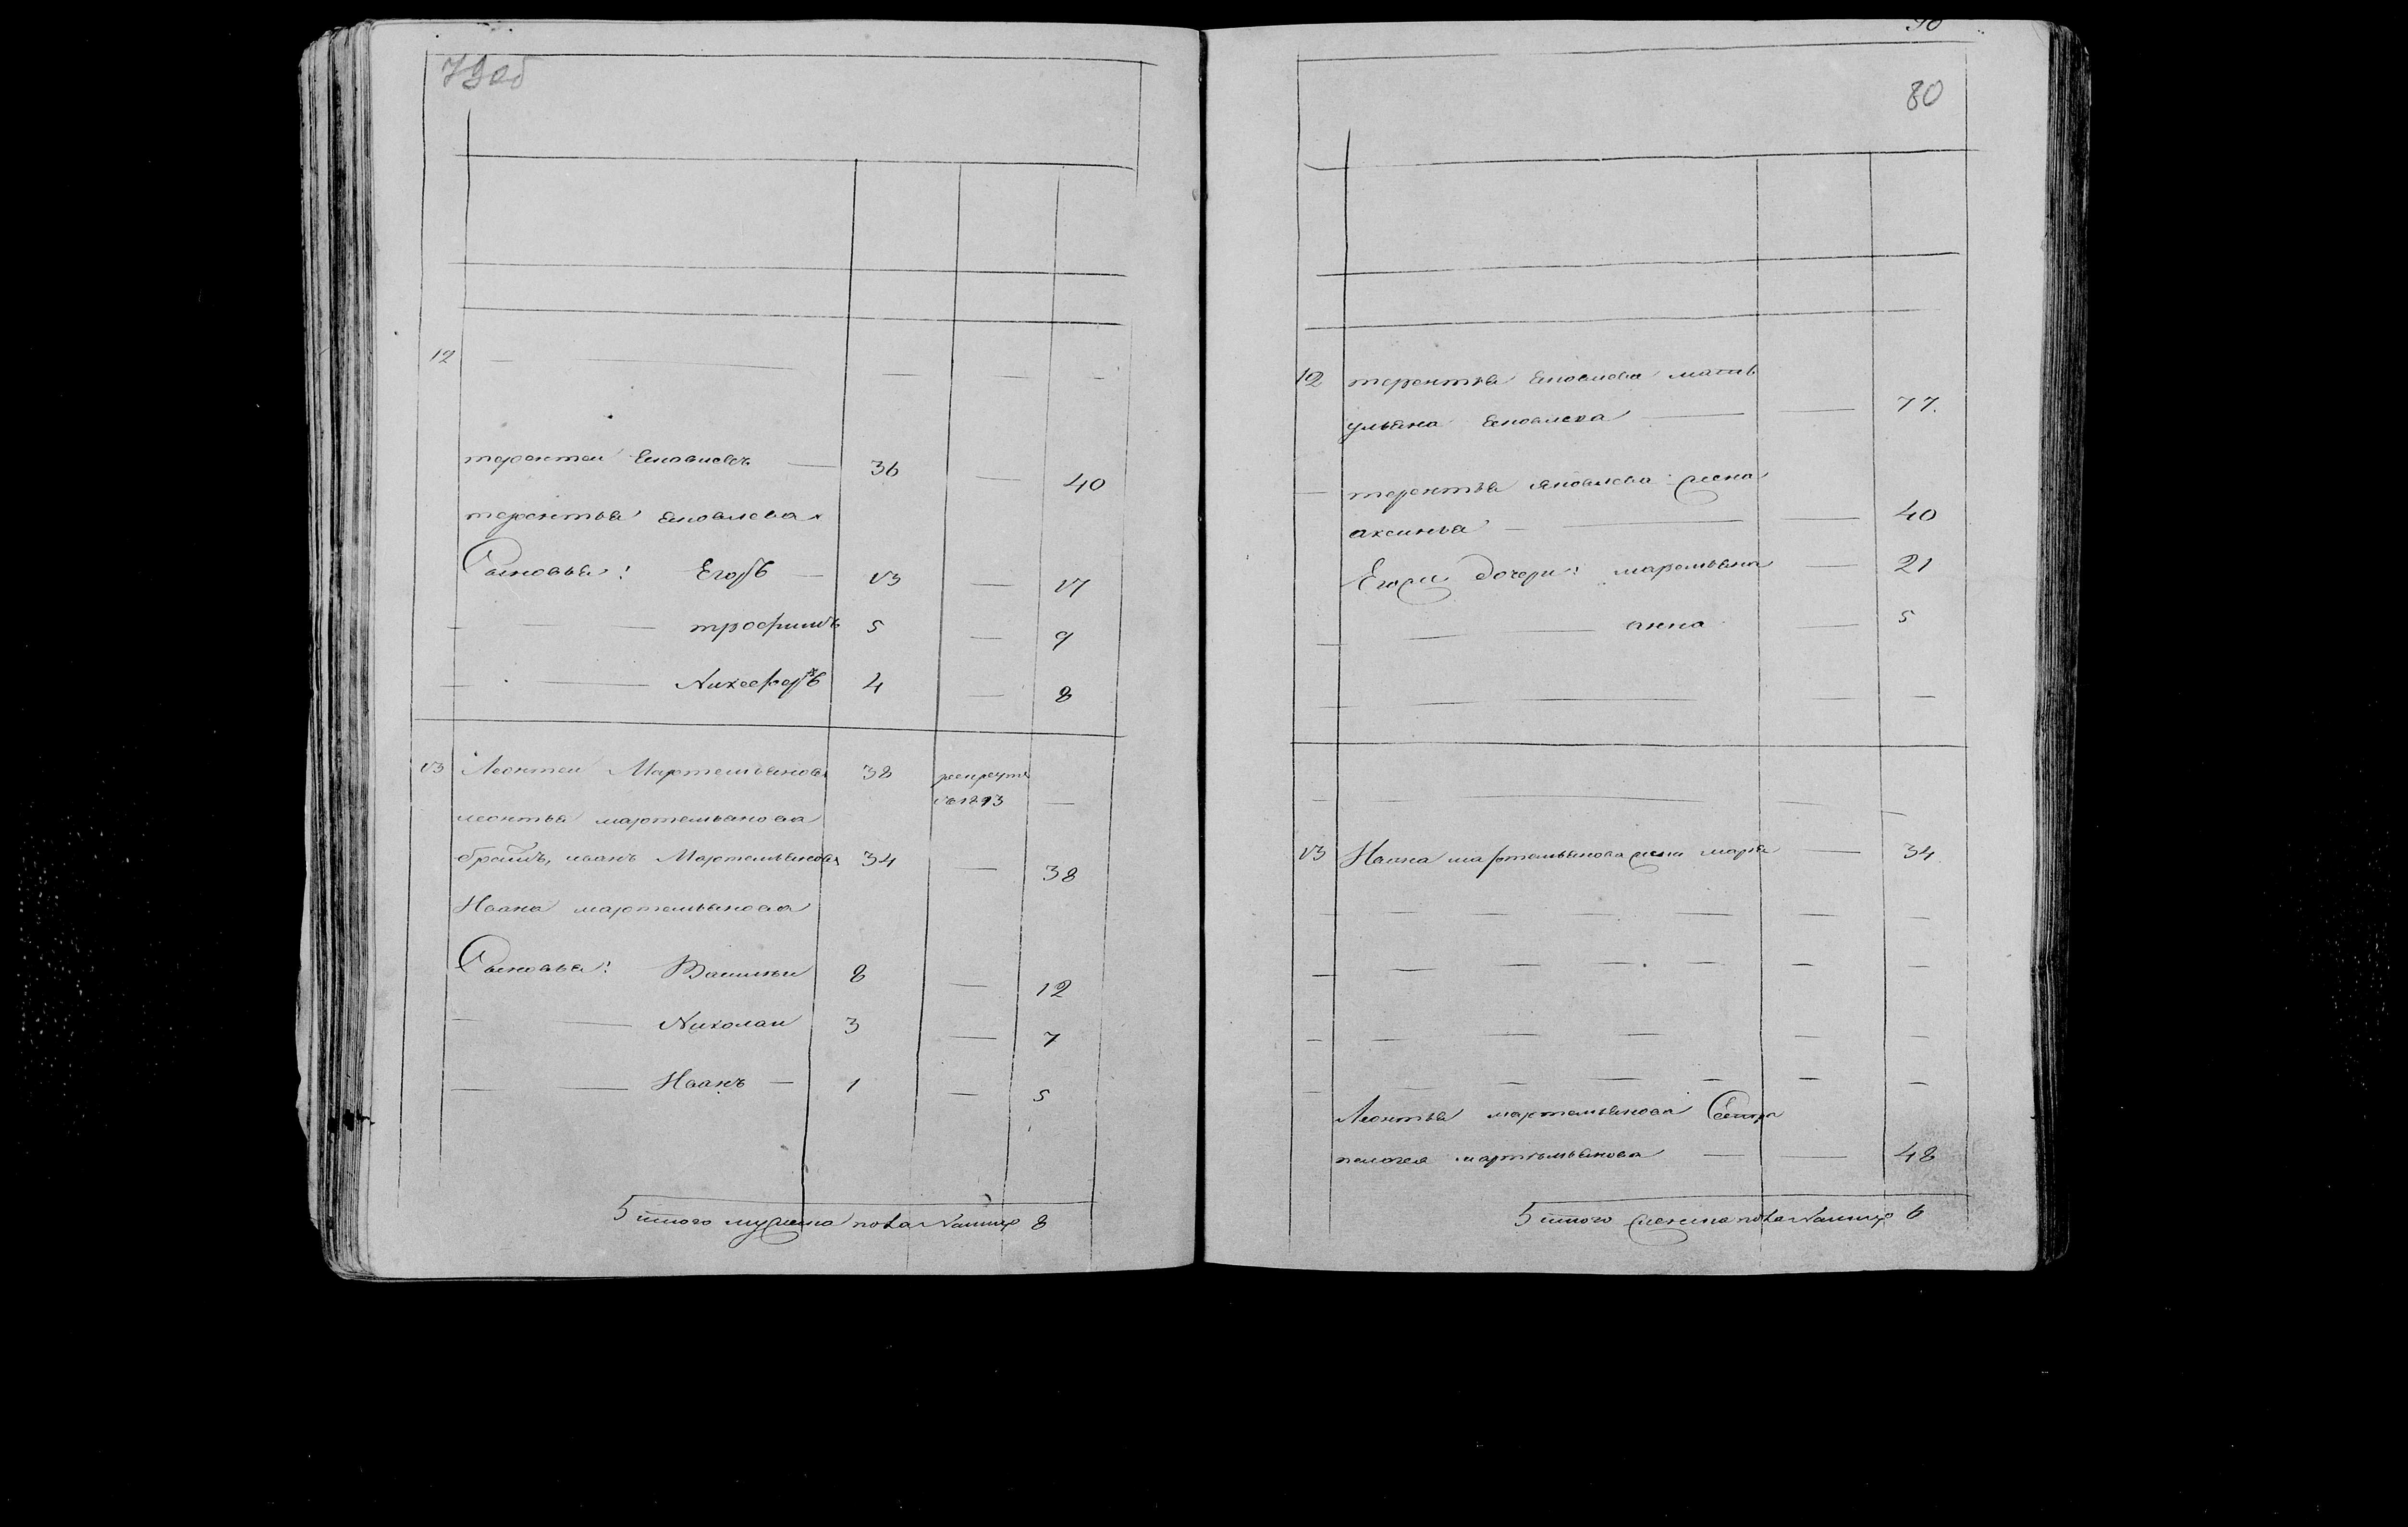 79об
12
терентеи Яковлевъ 36 40
терентья яковлева
Сыновья: Егоръ 13 17
трофимъ 5 9
Никефоръ 4 8
13 Леонтеи Мартемьяновъ 38 рекрутъ
въ 1813
леонтья мартемьянова
братъ, иванъ Мартемьяновъ 34 38
Ивана мартемьянова
Сыновья: Василии 8 12
Николаи 3 7
Иванъ 1 5
Итого мужеска пола На лицо 8
90
80
12 терентья Яковлева мать
ульяна Яковлева 77.
терентья яковлева жена
аксинья 40
дочери: маремьяна 21
анна 5
13 Ивана мартемьянова жена марья 34
Леонтья мартемьянова Сестра
пелагея мартемьянова 48
Итого женска пола На лицо 6